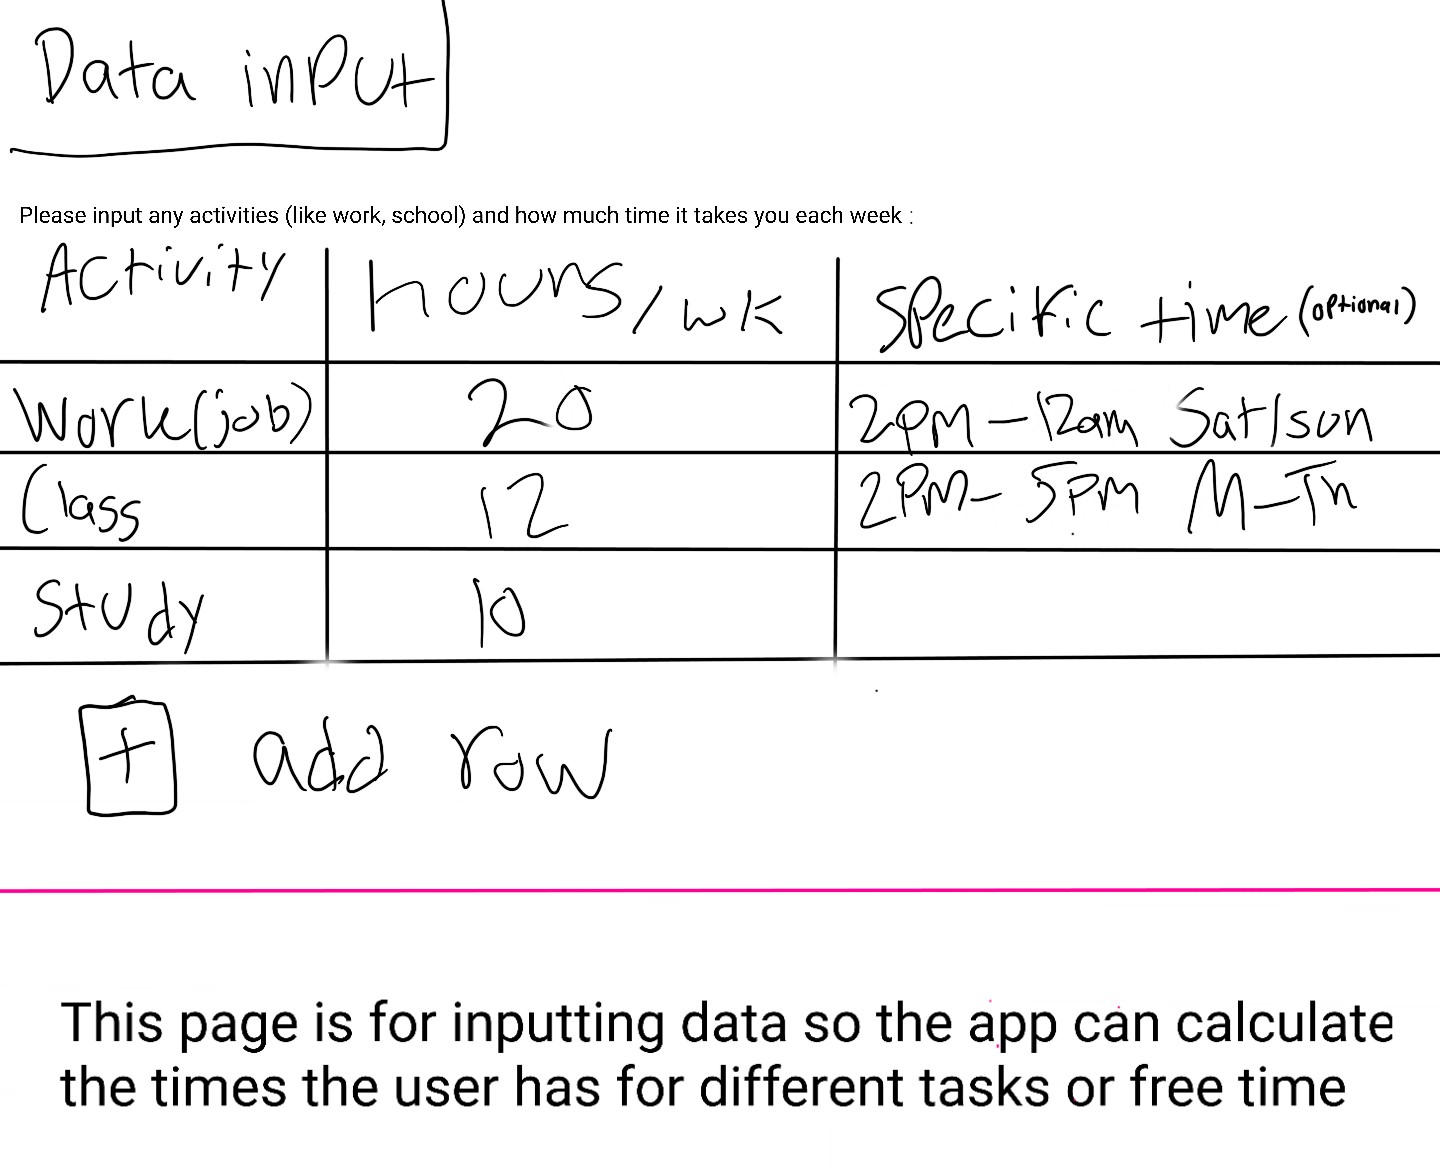 Data input
Please input any activities (like work, school) and how much time it takes you each week :
Activity hours/wk specific time (optional)
Work (job) 20 2PM - 12am Sat/sun
Class 12 2PM - 5PM M-Th
Study 10
+ add row
This page is for inputting data so the app can calculate
the times the user has for different tasks or free time